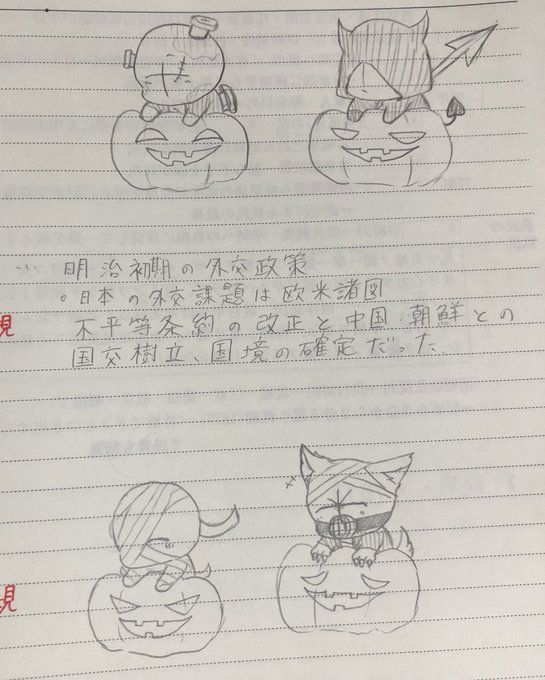 明治初期の外交政策
。日本の外交課題は欧米諸図
不平等条約の改正と中国・朝鮮との
国交樹立、国境の確定だった
現
現